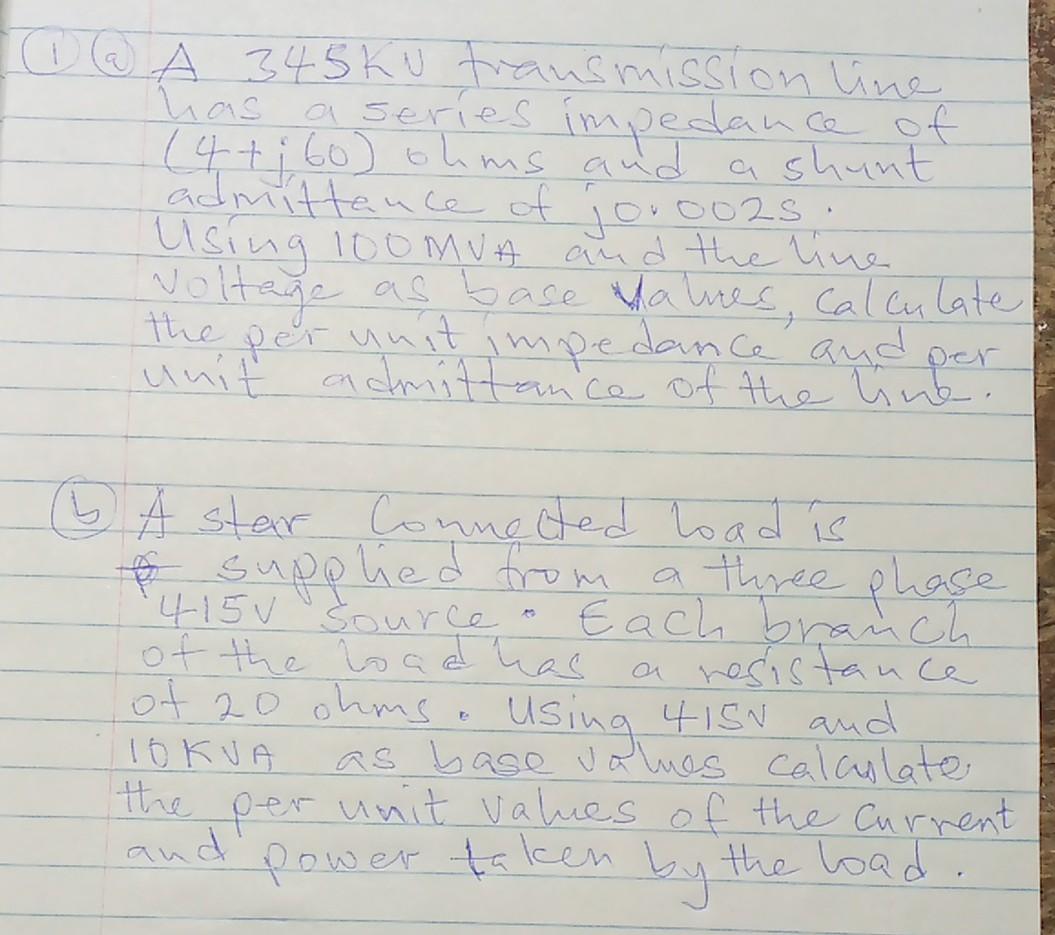 ① ⓐ A 345KV transmission line
has a series impedance of
(4+j60) ohms and a shunt
admittance of j0.002S.
Using 100MVA and the line
voltage as base values, calculate
the per unit impedance and per
unit admittance of the line.
ⓑ A star Connected load is
supplied from a three phase
415V source. Each branch
of the load has a resistance
of 20 ohms. Using 415V and
10KVA as base values calculate
the per unit values of the current
and power taken by the load.